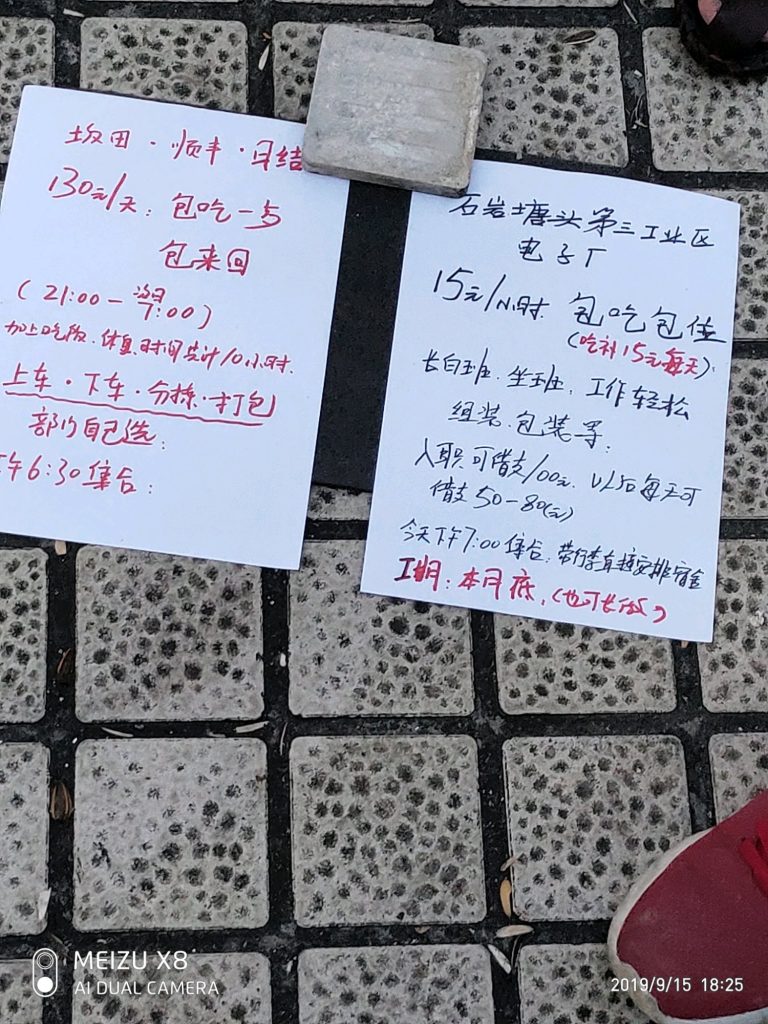 坂田·顺丰·日结
130元/天: 包吃一与
包来回
(21:00-翌日7:00)
加上吃饭、休息时间共计10小时.
上车·下车·分拣·打包
部门自己选:
午6:30集合:
石岩塘头第三工业区
电子厂
15元/小时. 包吃包住
(吃补15元每天)
长白班、坐班、工作轻松
组装、包装等.
入职可借支100元. 以后每天可
借支50-80(元)
今天下午7:00集合. 带行李直接安排宿舍
工期: 本月底.(也可长做)
MEIZU X8
AI DUAL CAMERA
2019/9/15 18:25